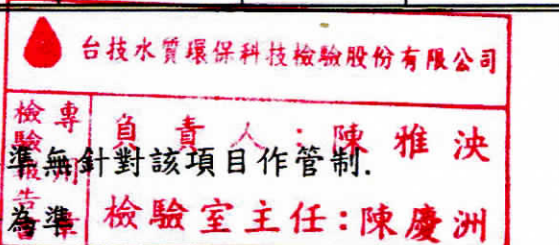 台技水質環保科技檢驗股份有限公司
檢驗報告書專用章
負責人：陳雅泱
準無針對該項目作管制.
為準
檢驗室主任：陳慶洲